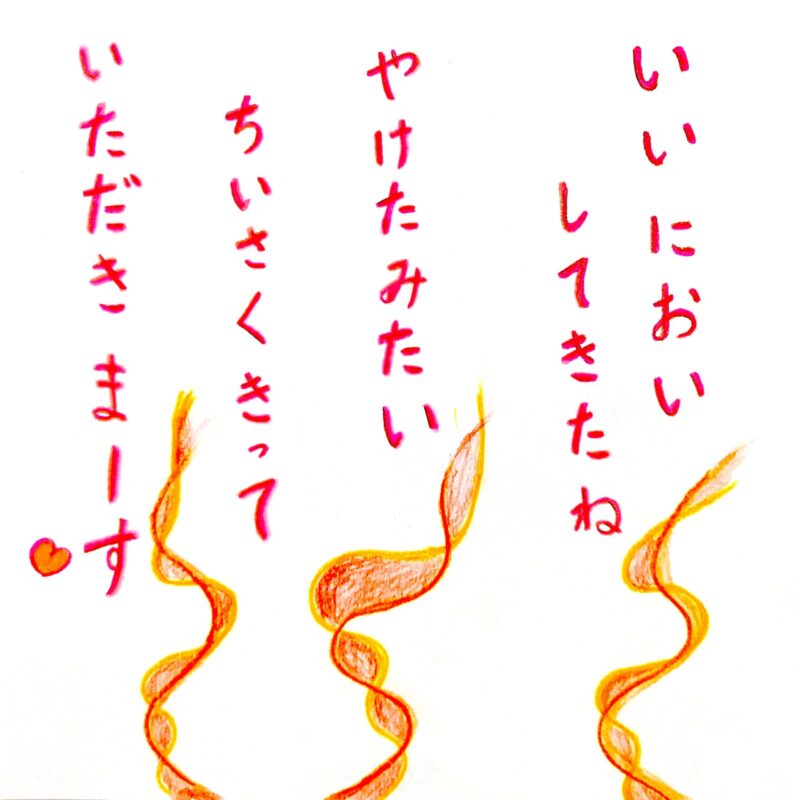 いいにおい
してきたね
やけたみたい
ちいさくきって
いただきまーす